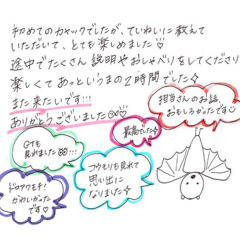 初めてのカヤックでしたが、ていねいに教えて
いただいて、とても楽しめました♡
途中でたくさん説明やおしゃべりをしてくださり
楽しくてあっというまの2時間でした
また来たいです…
ありがとうございました
担当さんのお話、
おもしろかったです♡
最高でした
GTも
見れました
!!!
コウモリも見れて
思い出に
なりました
かわいかった
です♡